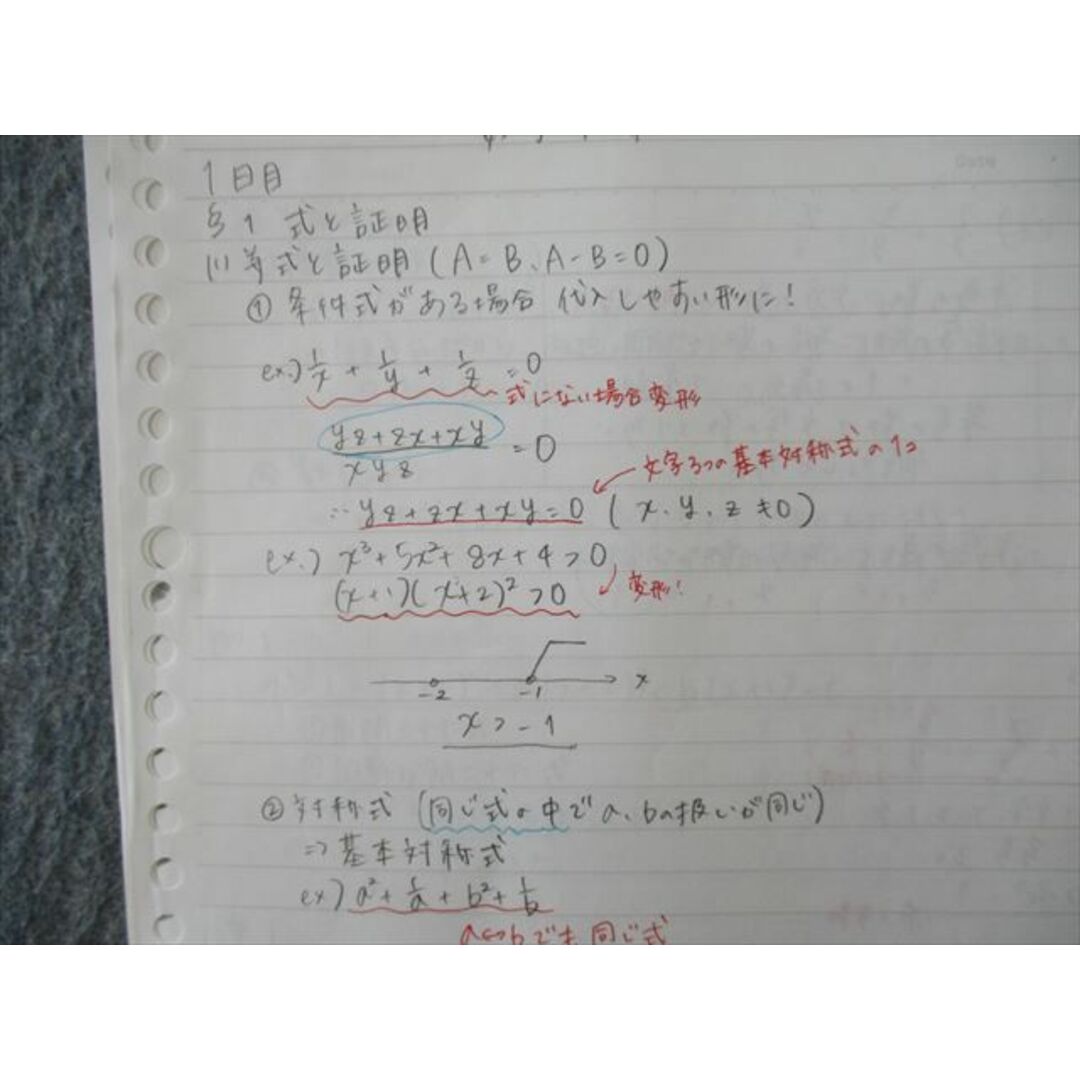 1日目
§1 式と証明
(1) 等式と証明 (A=B、A-B=0)
① 条件式がある場合 代入しやすい形に!
ex.) 1/x + 1/y + 1/z = 0
式にない場合変形
(yz+zx+xy)/xyz = 0
文字3つの基本対称式の1つ
∴ yz+zx+xy=0 (x、y、z≠0)
ex.) x³+5x²+8x+4>0
(x+1)(x+2)²>0 変形!
-2 -1 x
x>-1
② 対称式 (同じ式の中でa、bの扱いが同じ)
⇒基本対称式
ex) a²+1/a+b²+1/b
a⇔bでも同じ式